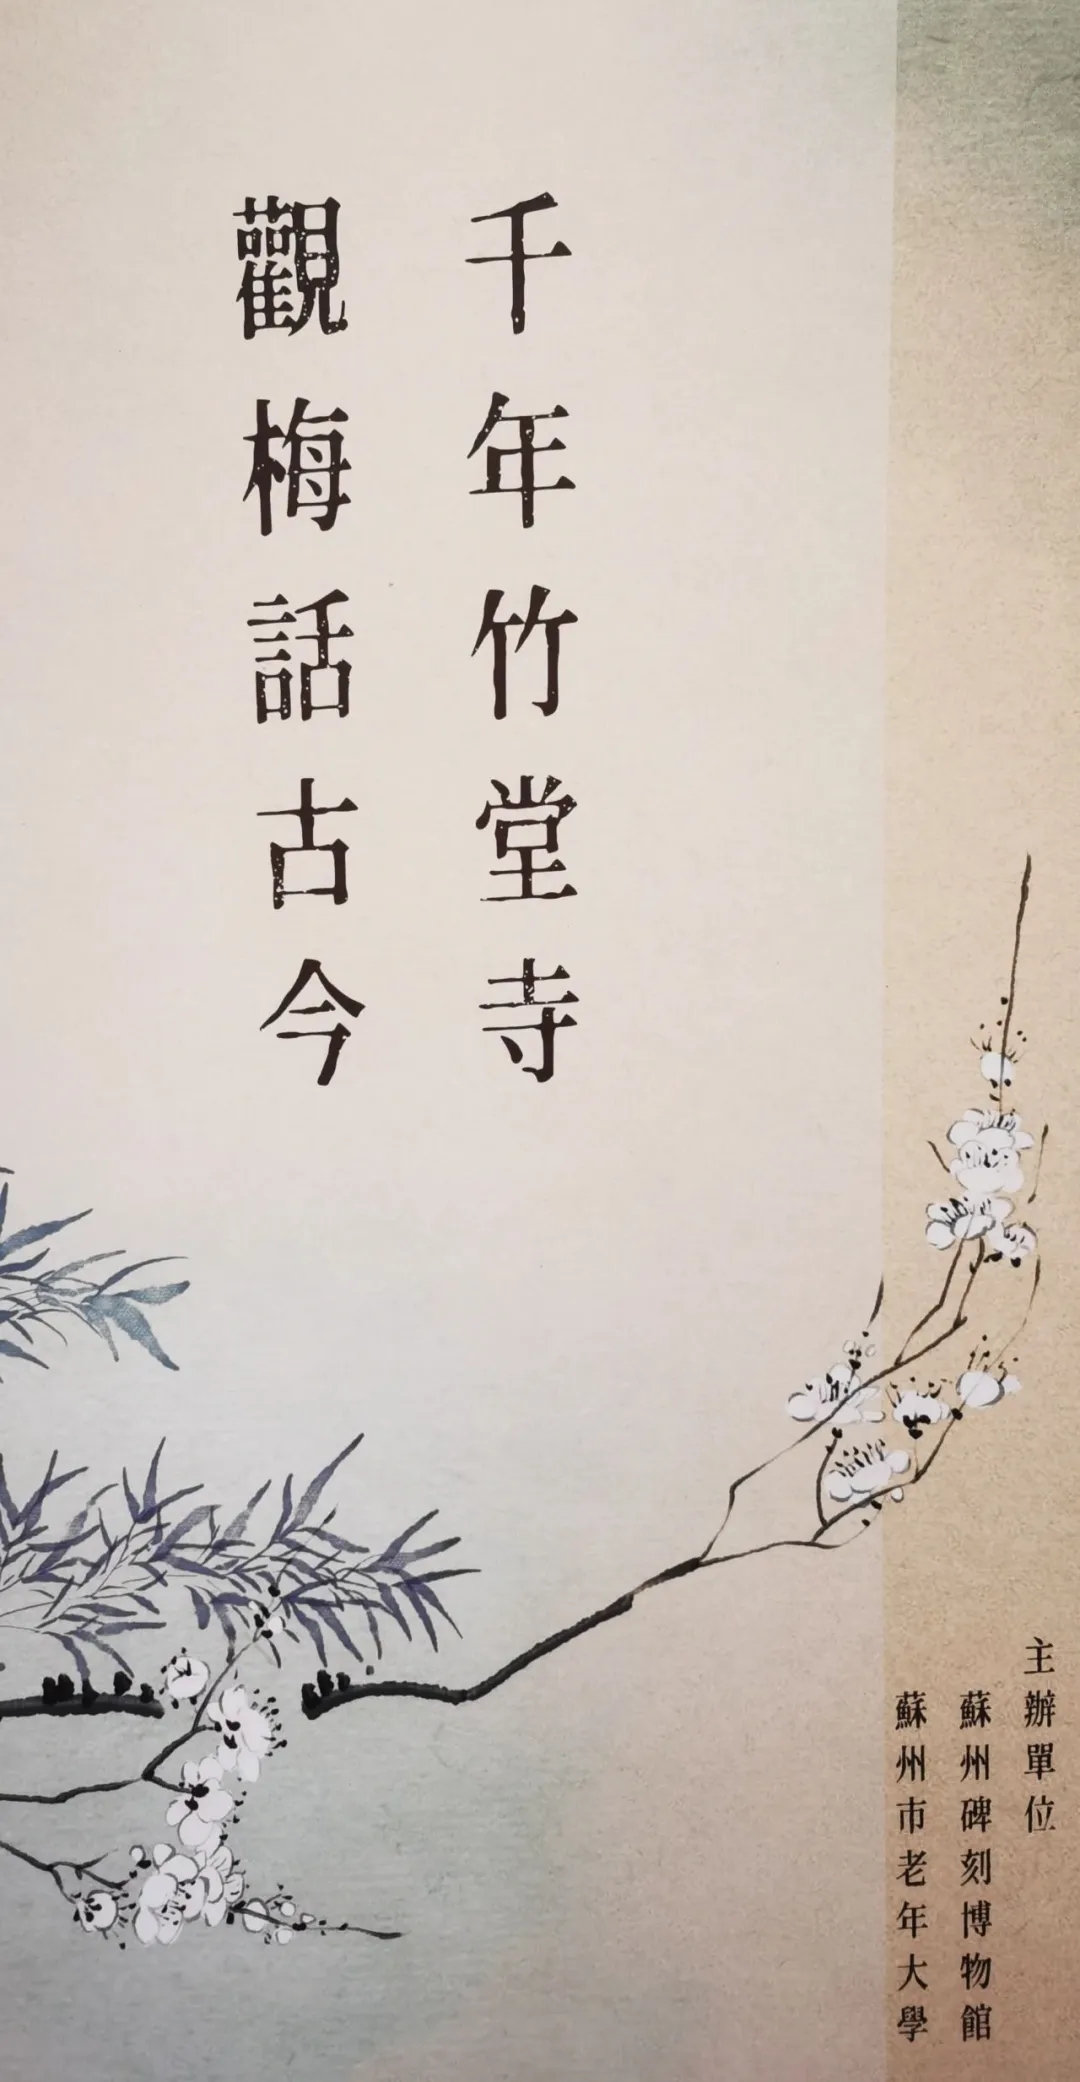 千年竹堂寺
觀梅話古今
主辦單位
蘇州碑刻博物館
蘇州市老年大學